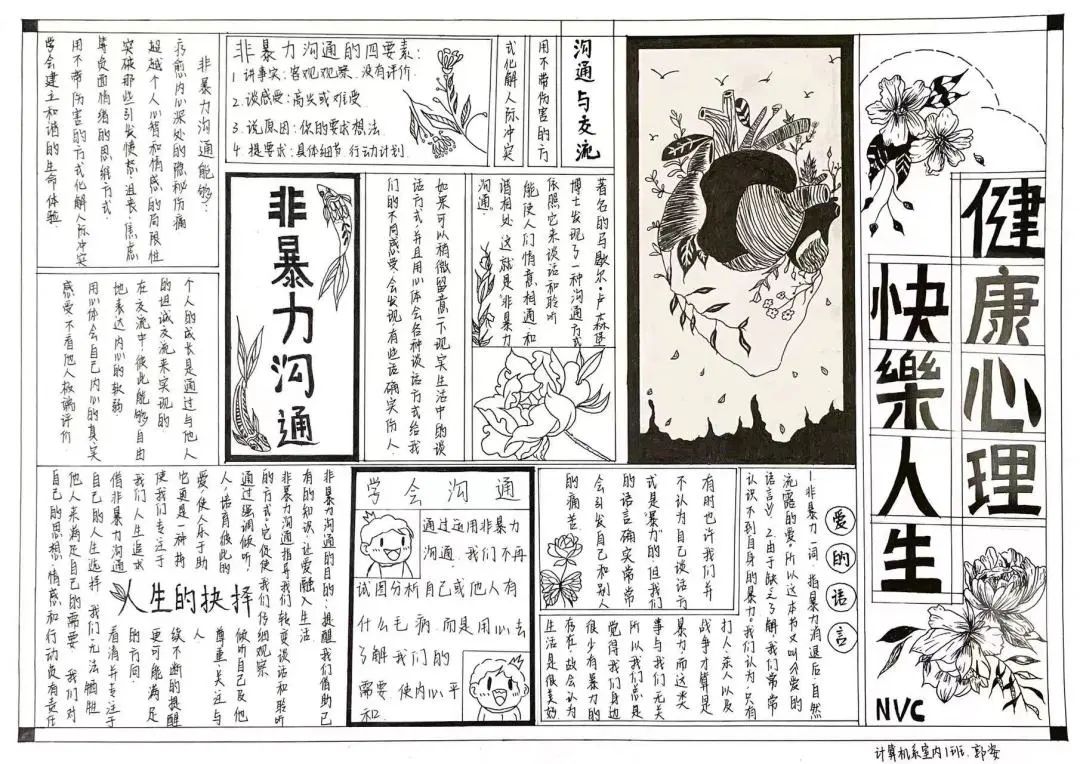 健康心理
快樂人生
NVC
沟通与交流
用不带伤害的方
式化解人际冲突
非暴力沟通的四要素:
1.讲事实:客观观察.没有评价.
2.谈感受:高兴或难受.
3.说原因:你的要求想法.
4.提要求:具体细节 行动计划.
非暴力沟通能够:
疗愈内心深处的隐秘伤痛
超越个人心智和情感的局限性
突破那些引发愤怒.沮丧.焦虑
等负面情绪的思维方式
用不带伤害的方式化解人际冲突
学会建立和谐的生命体验.
著名的马歇尔·卢森堡
博士发现了一种沟通方式
依照它来谈话和聆听
能使人们情意相通.和
谐相处.这就是"非暴力
沟通".
如果可以稍微留意一下现实生活中的谈
话方式,并且用心体会各种谈话方式给我
们的不同感受,会发现.有些话确实伤人.
非暴力沟通
个人的成长是通过与他人
的坦诚交流来实现的
在交流中.彼此能够自由
地表达内心的软弱
用心体会自己内心的真实
感受.不看他人极端评价
爱的语言
1.非暴力一词.指暴力消退后.自然
流露的爱,所以这本书又叫《爱的
语言》 2.由于缺乏了解.我们常常
认识不到自身的暴力.我们认为.只有
打人.杀人.以及
战争才算是
暴力.而这类
事与我们无关
所以我们总是
觉得我们身边
很少有暴力的
存在.故会认为
生活是很美好
有时也许我们并
不认为自己谈话方
式是"暴力"的.但我们
的语言确实常常
会引发自己和别人
的痛苦
学会沟通
通过运用非暴力
沟通.我们不再
试图分析自己或他人有
什么毛病.而是用心去
了解我们的
需要.使内心平
和.
非暴力沟通的目的:提醒我们借助已
有的知识,让爱融入生活.
非暴力沟通指导我们转变谈话和聆听
的方式,它促使我们仔细观察
通过强调倾听:倾听自己及他
人,培育彼此的尊重.关注与
爱,使人乐于助人
人生的抉择
它更是一种持续不断的提醒
使我们专注于更可能满足
我们人生追求的方向.
借非暴力沟通看清并专注于
自己的人生选择.我们无法牺牲
他人来满足自己的需要.我们对
自己的思想.情感和行动负有责任
计算机系室内1班.郭姿